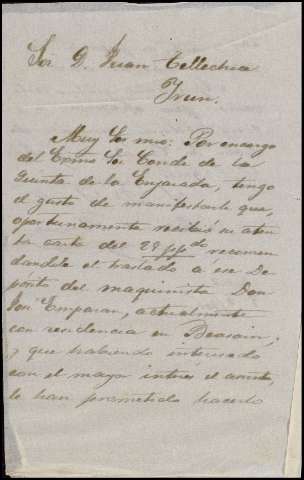 Sor. D. Juan Tellechea
Irun.
Muy Sor mio: Por encargo
del Exmo Sor Conde de la
Quinta de la Enjarada, tengo
el gusto de manifestarle que,
oportunamente recibió su aten
ta carta del 29 ppdo recomen
dandole el traslado á ese De
pósito del maquinista Don
José Emparan, actualmente
con residencia en Beasain;
y que habiendo interesado
con el mayor interés el asunto,
le han prometido hacerlo